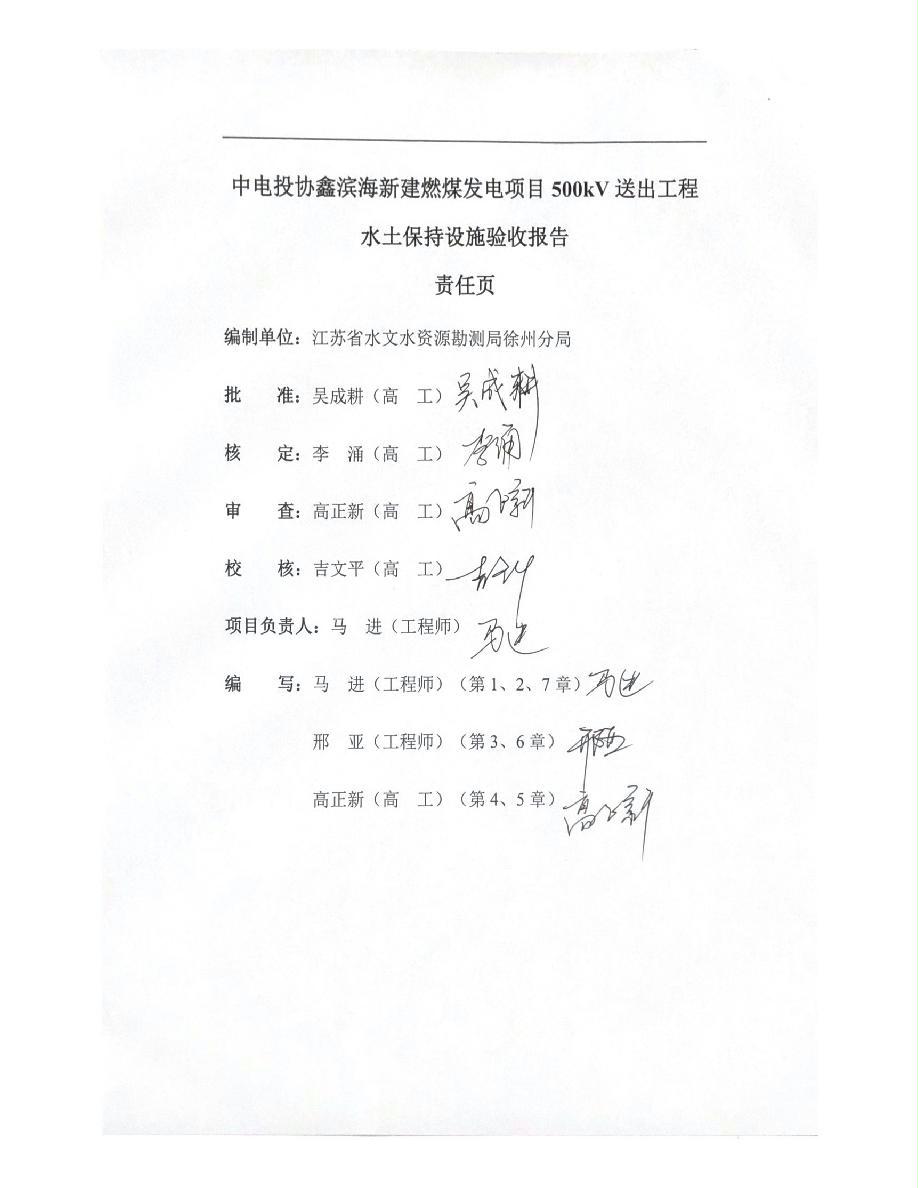 中电投协鑫滨海新建燃煤发电项目 500kV 送出工程
水土保持设施验收报告
责任页
编制单位：江苏省水文水资源勘测局徐州分局
批　准：吴成耕（高　工）吴成耕
核　定：李　涌（高　工）李涌
审　查：高正新（高　工）高正新
校　核：吉文平（高　工）吉文平
项目负责人：马　进（工程师）马进
编　写：马　进（工程师）（第 1、2、7 章）马进
邢　亚（工程师）（第 3、6 章）邢亚
高正新（高　工）（第 4、5 章）高正新